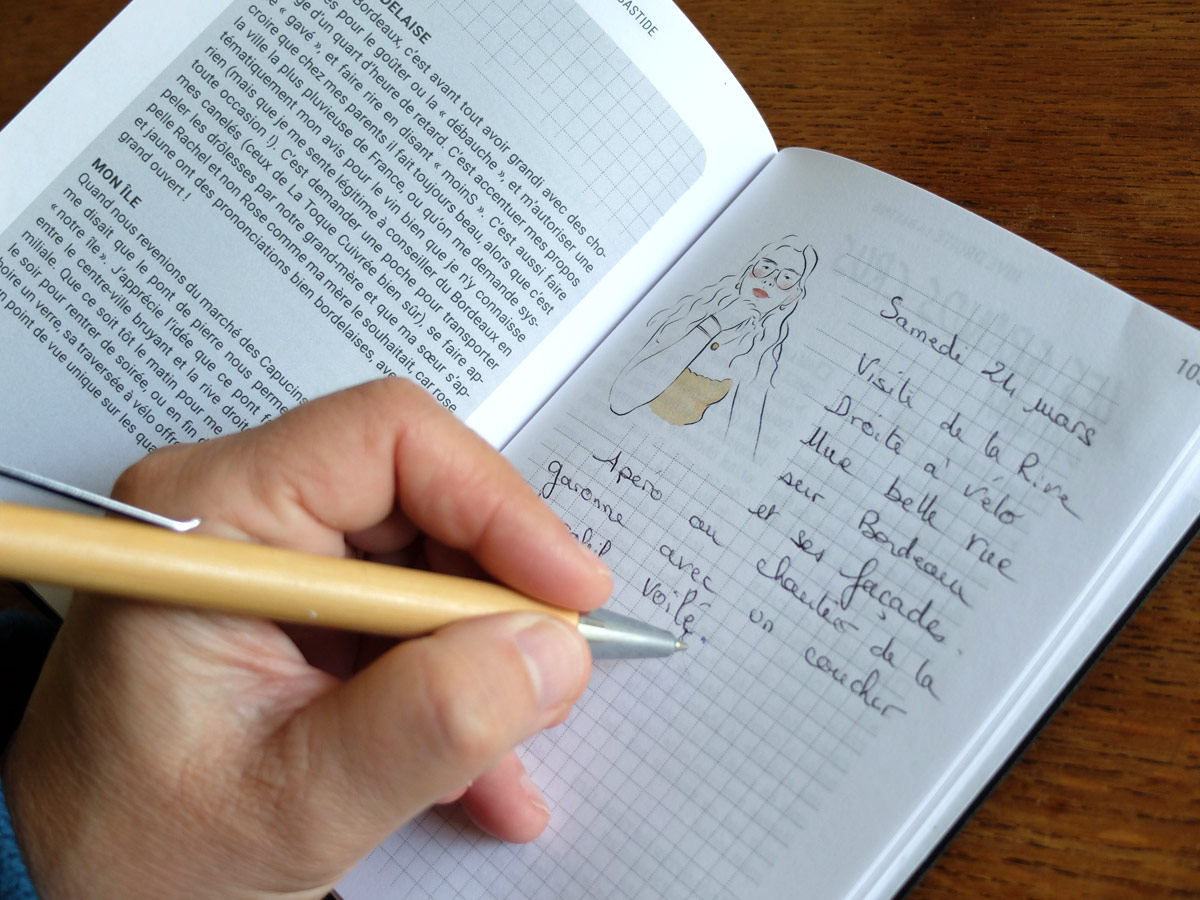 BASTIDE
DELAISE
Bordeaux, c'est avant tout avoir grandi avec des cho
es pour le goûter ou la « débauche », et m'autoriser une
ge d'un quart d'heure de retard. C'est accentuer mes propos
« gavé », et faire rire en disant « moins ». C'est aussi faire
croire que chez mes parents il fait toujours beau, alors que c'est
la ville la plus pluvieuse de France, ou qu'on me demande sys-
tématiquement mon avis pour le vin bien que je n'y connaisse
rien (mais que je me sente légitime à conseiller du Bordeaux en
toute occasion !). C'est demander une poche pour transporter
mes canelés (ceux de La Toque Cuivrée bien sûr), se faire ap-
peler les drôlesses par notre grand-mère et que ma sœur s'ap-
pelle Rachel et non Rose comme ma mère le souhaitait, car rose
et jaune ont des prononciations bien bordelaises, ave
grand ouvert !
MON ÎLE
Quand nous revenions du marché des Capucin
me disait que le pont de pierre nous perme
« notre île ». J'apprécie l'idée que ce pont fe
entre le centre-ville bruyant et la rive droit
miliale. Que ce soit tôt le matin pour me
le soir pour rentrer de soirée, ou en fin d
boire un verre, sa traversée à vélo offre
n point de vue unique sur les qua
10
Samedi 24 mars
Visite de la Rive
Droite à vélo
Une belle rue
sur Bordeaux
et ses façades.
Apéro au chantier de la
garonne avec un coucher
voilé.